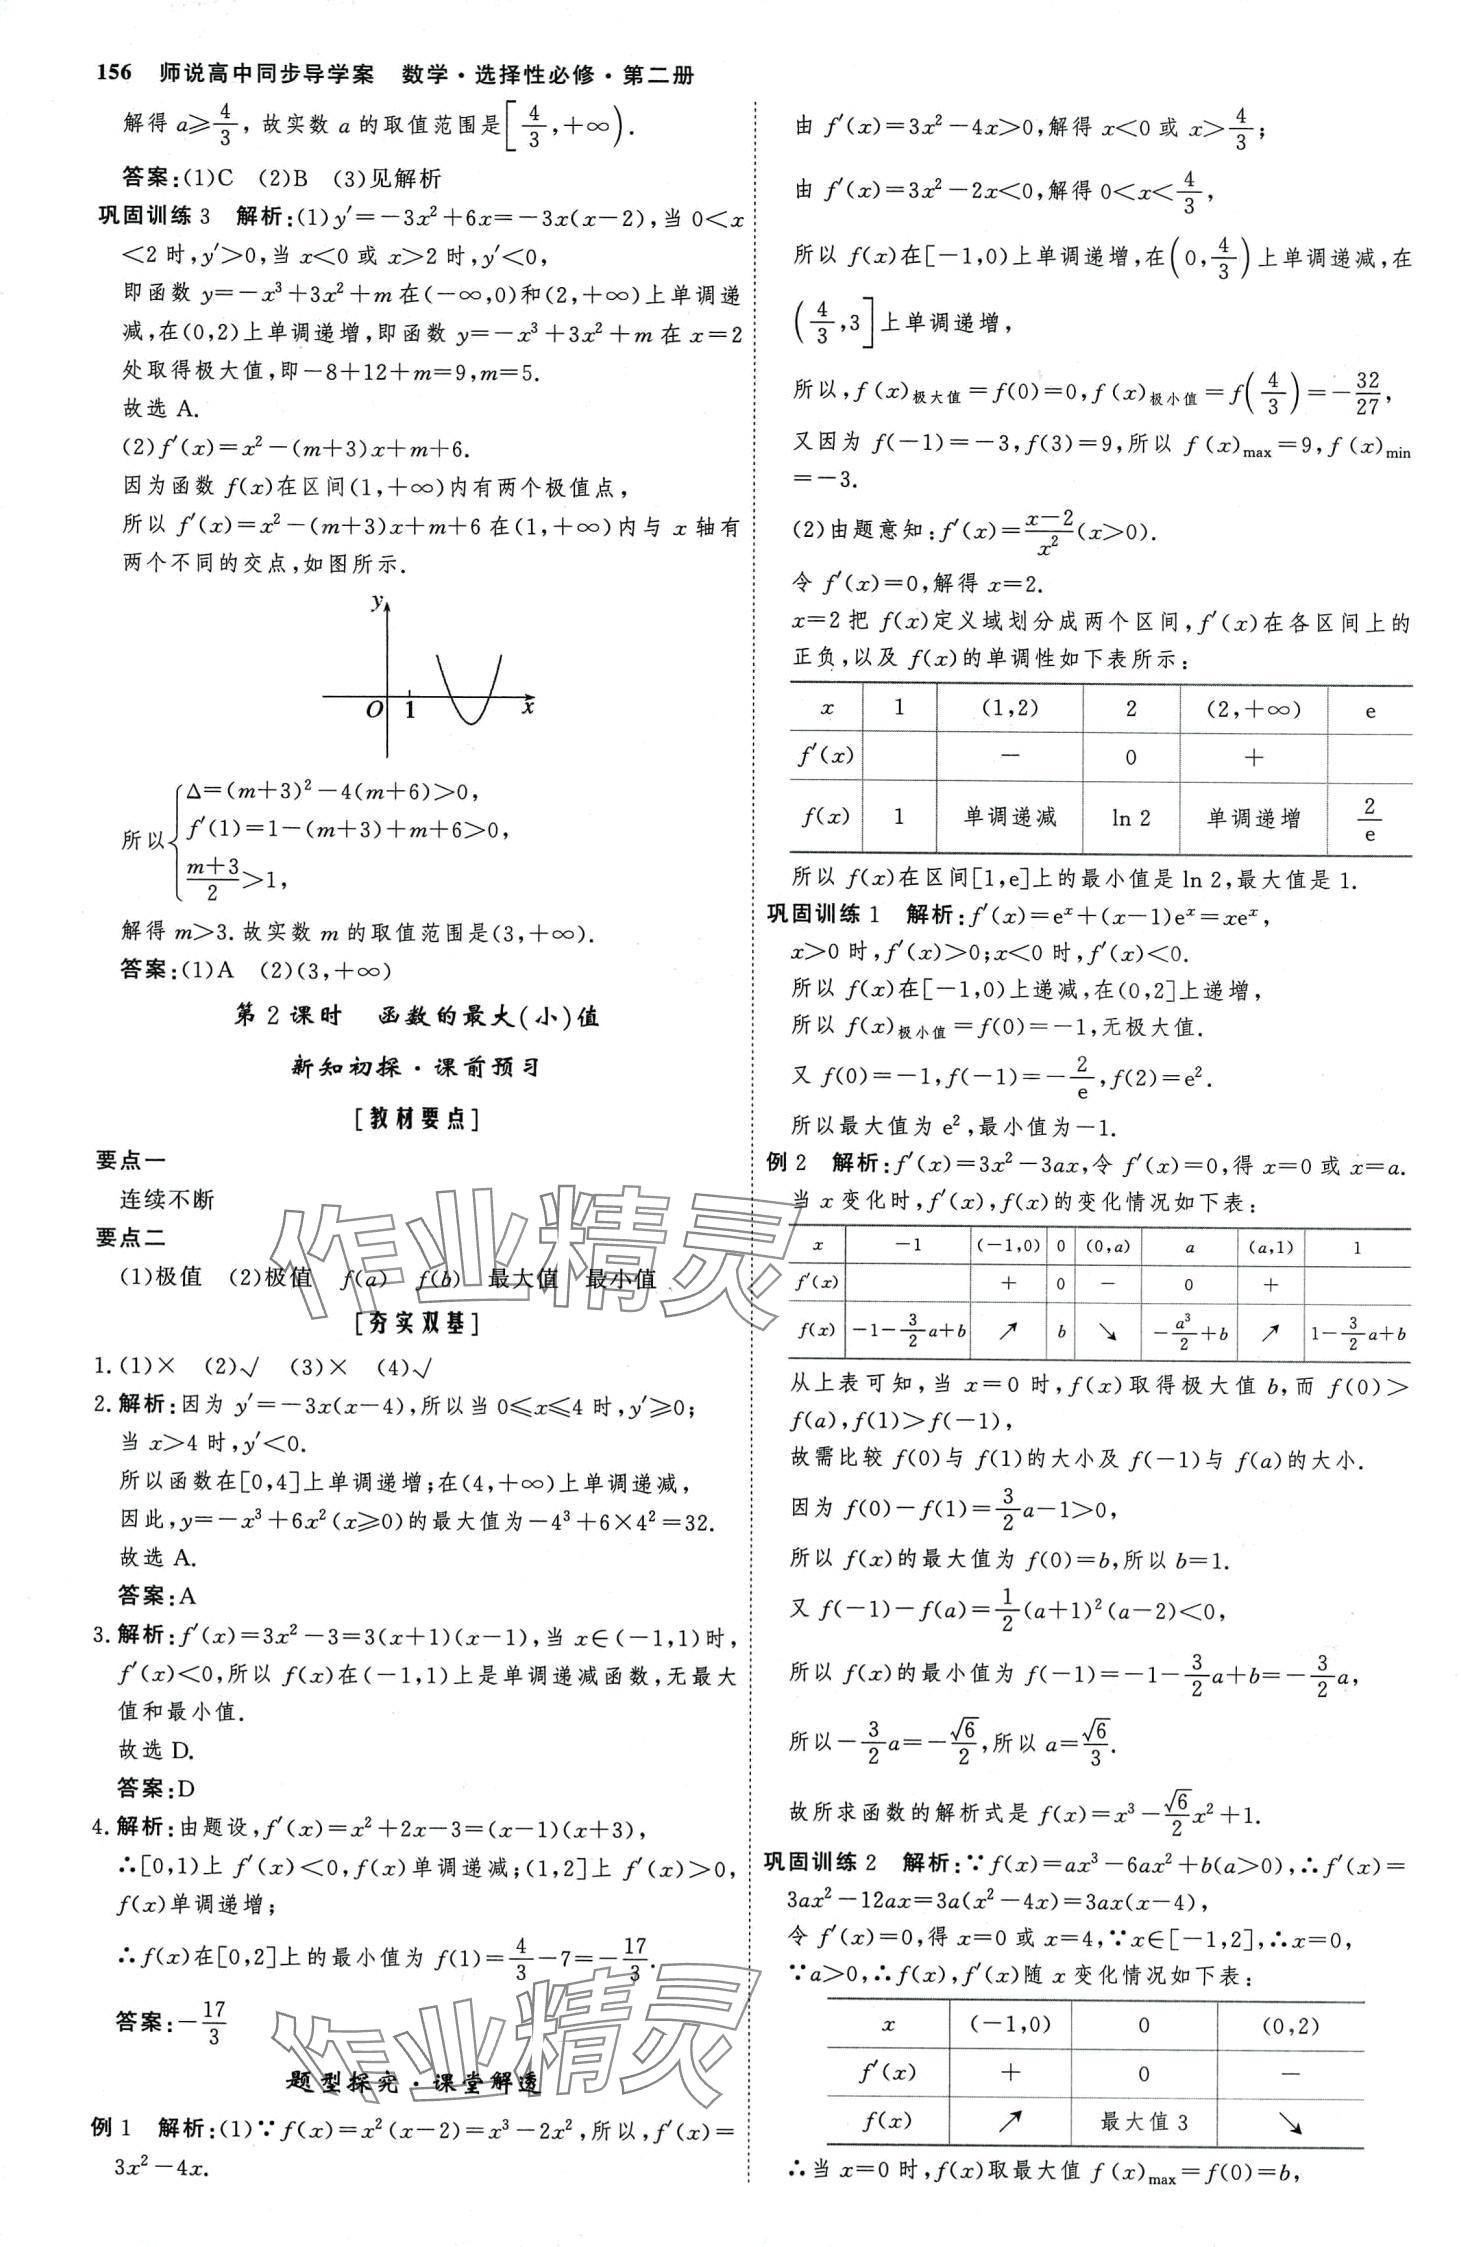 156 师说高中同步导学案 数学·选择性必修·第二册
解得 a≥4/3，故实数 a 的取值范围是[4/3,+∞).
答案:(1)C (2)B (3)见解析
巩固训练 3 解析:(1)y′=-3x²+6x=-3x(x-2),当 0<x
<2 时,y′>0,当 x<0 或 x>2 时,y′<0,
即函数 y=-x³+3x²+m 在(-∞,0)和(2,+∞)上单调递
减,在(0,2)上单调递增,即函数 y=-x³+3x²+m 在 x=2
处取得极大值,即-8+12+m=9,m=5.
故选 A.
(2)f′(x)=x²-(m+3)x+m+6.
因为函数 f(x)在区间(1,+∞)内有两个极值点,
所以 f′(x)=x²-(m+3)x+m+6 在(1,+∞)内与 x 轴有
两个不同的交点,如图所示.
y
O 1 x
所以{Δ=(m+3)²-4(m+6)>0,
f′(1)=1-(m+3)+m+6>0,
(m+3)/2>1,
解得 m>3.故实数 m 的取值范围是(3,+∞).
答案:(1)A (2)(3,+∞)
第 2 课时 函数的最大(小)值
新知初探·课前预习
[教材要点]
要点一
连续不断
要点二
(1)极值 (2)极值 f(a) f(b) 最大值 最小值
[夯实双基]
1.(1)× (2)√ (3)× (4)√
2.解析:因为 y′=-3x(x-4),所以当 0≤x≤4 时,y′≥0;
当 x>4 时,y′<0.
所以函数在[0,4]上单调递增;在(4,+∞)上单调递减,
因此,y=-x³+6x²(x≥0)的最大值为-4³+6×4²=32.
故选 A.
答案:A
3.解析:f′(x)=3x²-3=3(x+1)(x-1),当 x∈(-1,1)时,
f′(x)<0,所以 f(x)在(-1,1)上是单调递减函数,无最大
值和最小值.
故选 D.
答案:D
4.解析:由题设,f′(x)=x²+2x-3=(x-1)(x+3),
∴[0,1)上 f′(x)<0,f(x)单调递减;(1,2]上 f′(x)>0,
f(x)单调递增;
∴f(x)在[0,2]上的最小值为 f(1)=4/3-7=-17/3.
答案:-17/3
题型探究·课堂解透
例 1 解析:(1)∵f(x)=x²(x-2)=x³-2x²,所以,f′(x)=
3x²-4x.
由 f′(x)=3x²-4x>0,解得 x<0 或 x>4/3;
由 f′(x)=3x²-2x<0,解得 0<x<4/3,
所以 f(x)在[-1,0)上单调递增,在(0,4/3)上单调递减,在
(4/3,3]上单调递增,
所以,f(x)极大值=f(0)=0,f(x)极小值=f(4/3)=-32/27,
又因为 f(-1)=-3,f(3)=9,所以 f(x)max=9,f(x)min
=-3.
(2)由题意知:f′(x)=(x-2)/x²(x>0).
令 f′(x)=0,解得 x=2.
x=2 把 f(x)定义域划分成两个区间,f′(x)在各区间上的
正负,以及 f(x)的单调性如下表所示:
x 1 (1,2) 2 (2,+∞) e
f′(x) - 0 +
f(x) 1 单调递减 ln 2 单调递增 2/e
所以 f(x)在区间[1,e]上的最小值是 ln 2,最大值是 1.
巩固训练 1 解析:f′(x)=eˣ+(x-1)eˣ=xeˣ,
x>0 时,f′(x)>0;x<0 时,f′(x)<0.
所以 f(x)在[-1,0)上递减,在(0,2]上递增,
所以 f(x)极小值=f(0)=-1,无极大值.
又 f(0)=-1,f(-1)=-2/e,f(2)=e².
所以最大值为 e²,最小值为-1.
例 2 解析:f′(x)=3x²-3ax,令 f′(x)=0,得 x=0 或 x=a.
当 x 变化时,f′(x),f(x)的变化情况如下表:
x -1 (-1,0) 0 (0,a) a (a,1) 1
f′(x) + 0 - 0 +
f(x) -1-3/2a+b ↗ b ↘ -a³/2+b ↗ 1-3/2a+b
从上表可知,当 x=0 时,f(x)取得极大值 b,而 f(0)>
f(a),f(1)>f(-1),
故需比较 f(0)与 f(1)的大小及 f(-1)与 f(a)的大小.
因为 f(0)-f(1)=3/2a-1>0,
所以 f(x)的最大值为 f(0)=b,所以 b=1.
又 f(-1)-f(a)=1/2(a+1)²(a-2)<0,
所以 f(x)的最小值为 f(-1)=-1-3/2a+b=-3/2a,
所以-3/2a=-√6/2,所以 a=√6/3.
故所求函数的解析式是 f(x)=x³-√6/2x²+1.
巩固训练 2 解析:∵f(x)=ax³-6ax²+b(a>0),∴f′(x)=
3ax²-12ax=3a(x²-4x)=3ax(x-4),
令 f′(x)=0,得 x=0 或 x=4,∵x∈[-1,2],∴x=0,
∵a>0,∴f(x),f′(x)随 x 变化情况如下表:
x (-1,0) 0 (0,2)
f′(x) + 0 -
f(x) ↗ 最大值 3 ↘
∴当 x=0 时,f(x)取最大值 f(x)max=f(0)=b,
作业精灵
作业精灵